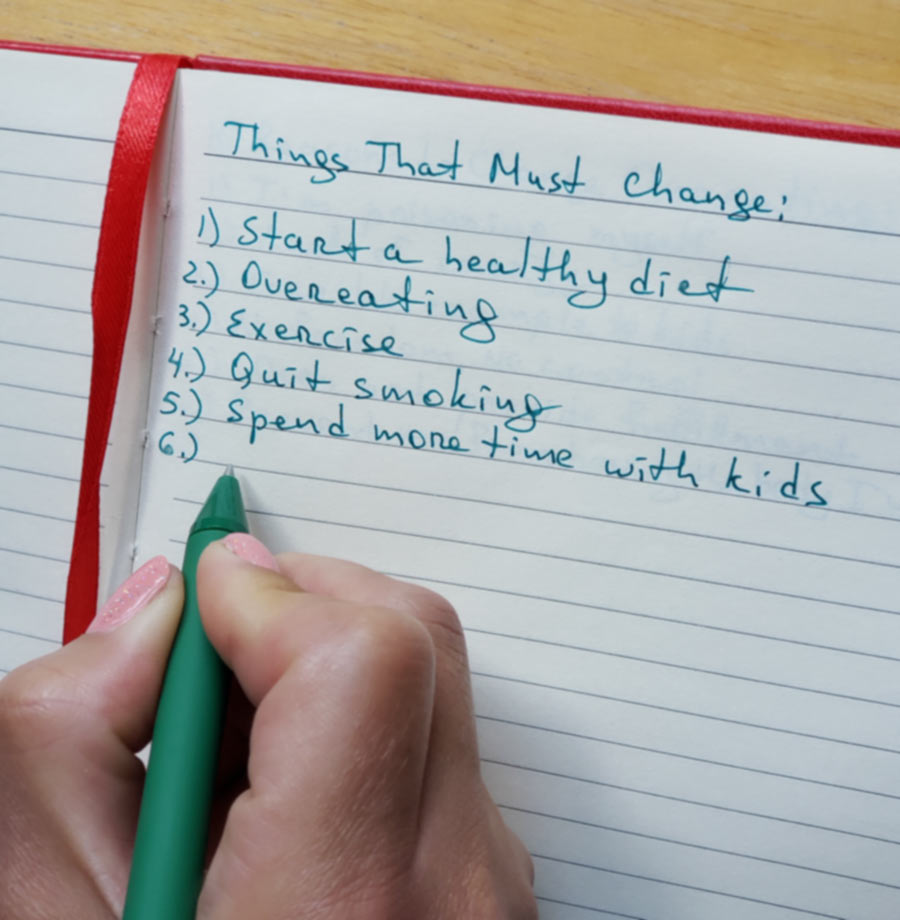 Things That Must Change:
1) Start a healthy diet
2.) Overeating
3.) Exercise
4.) Quit smoking
5.) Spend more time with kids
6.)